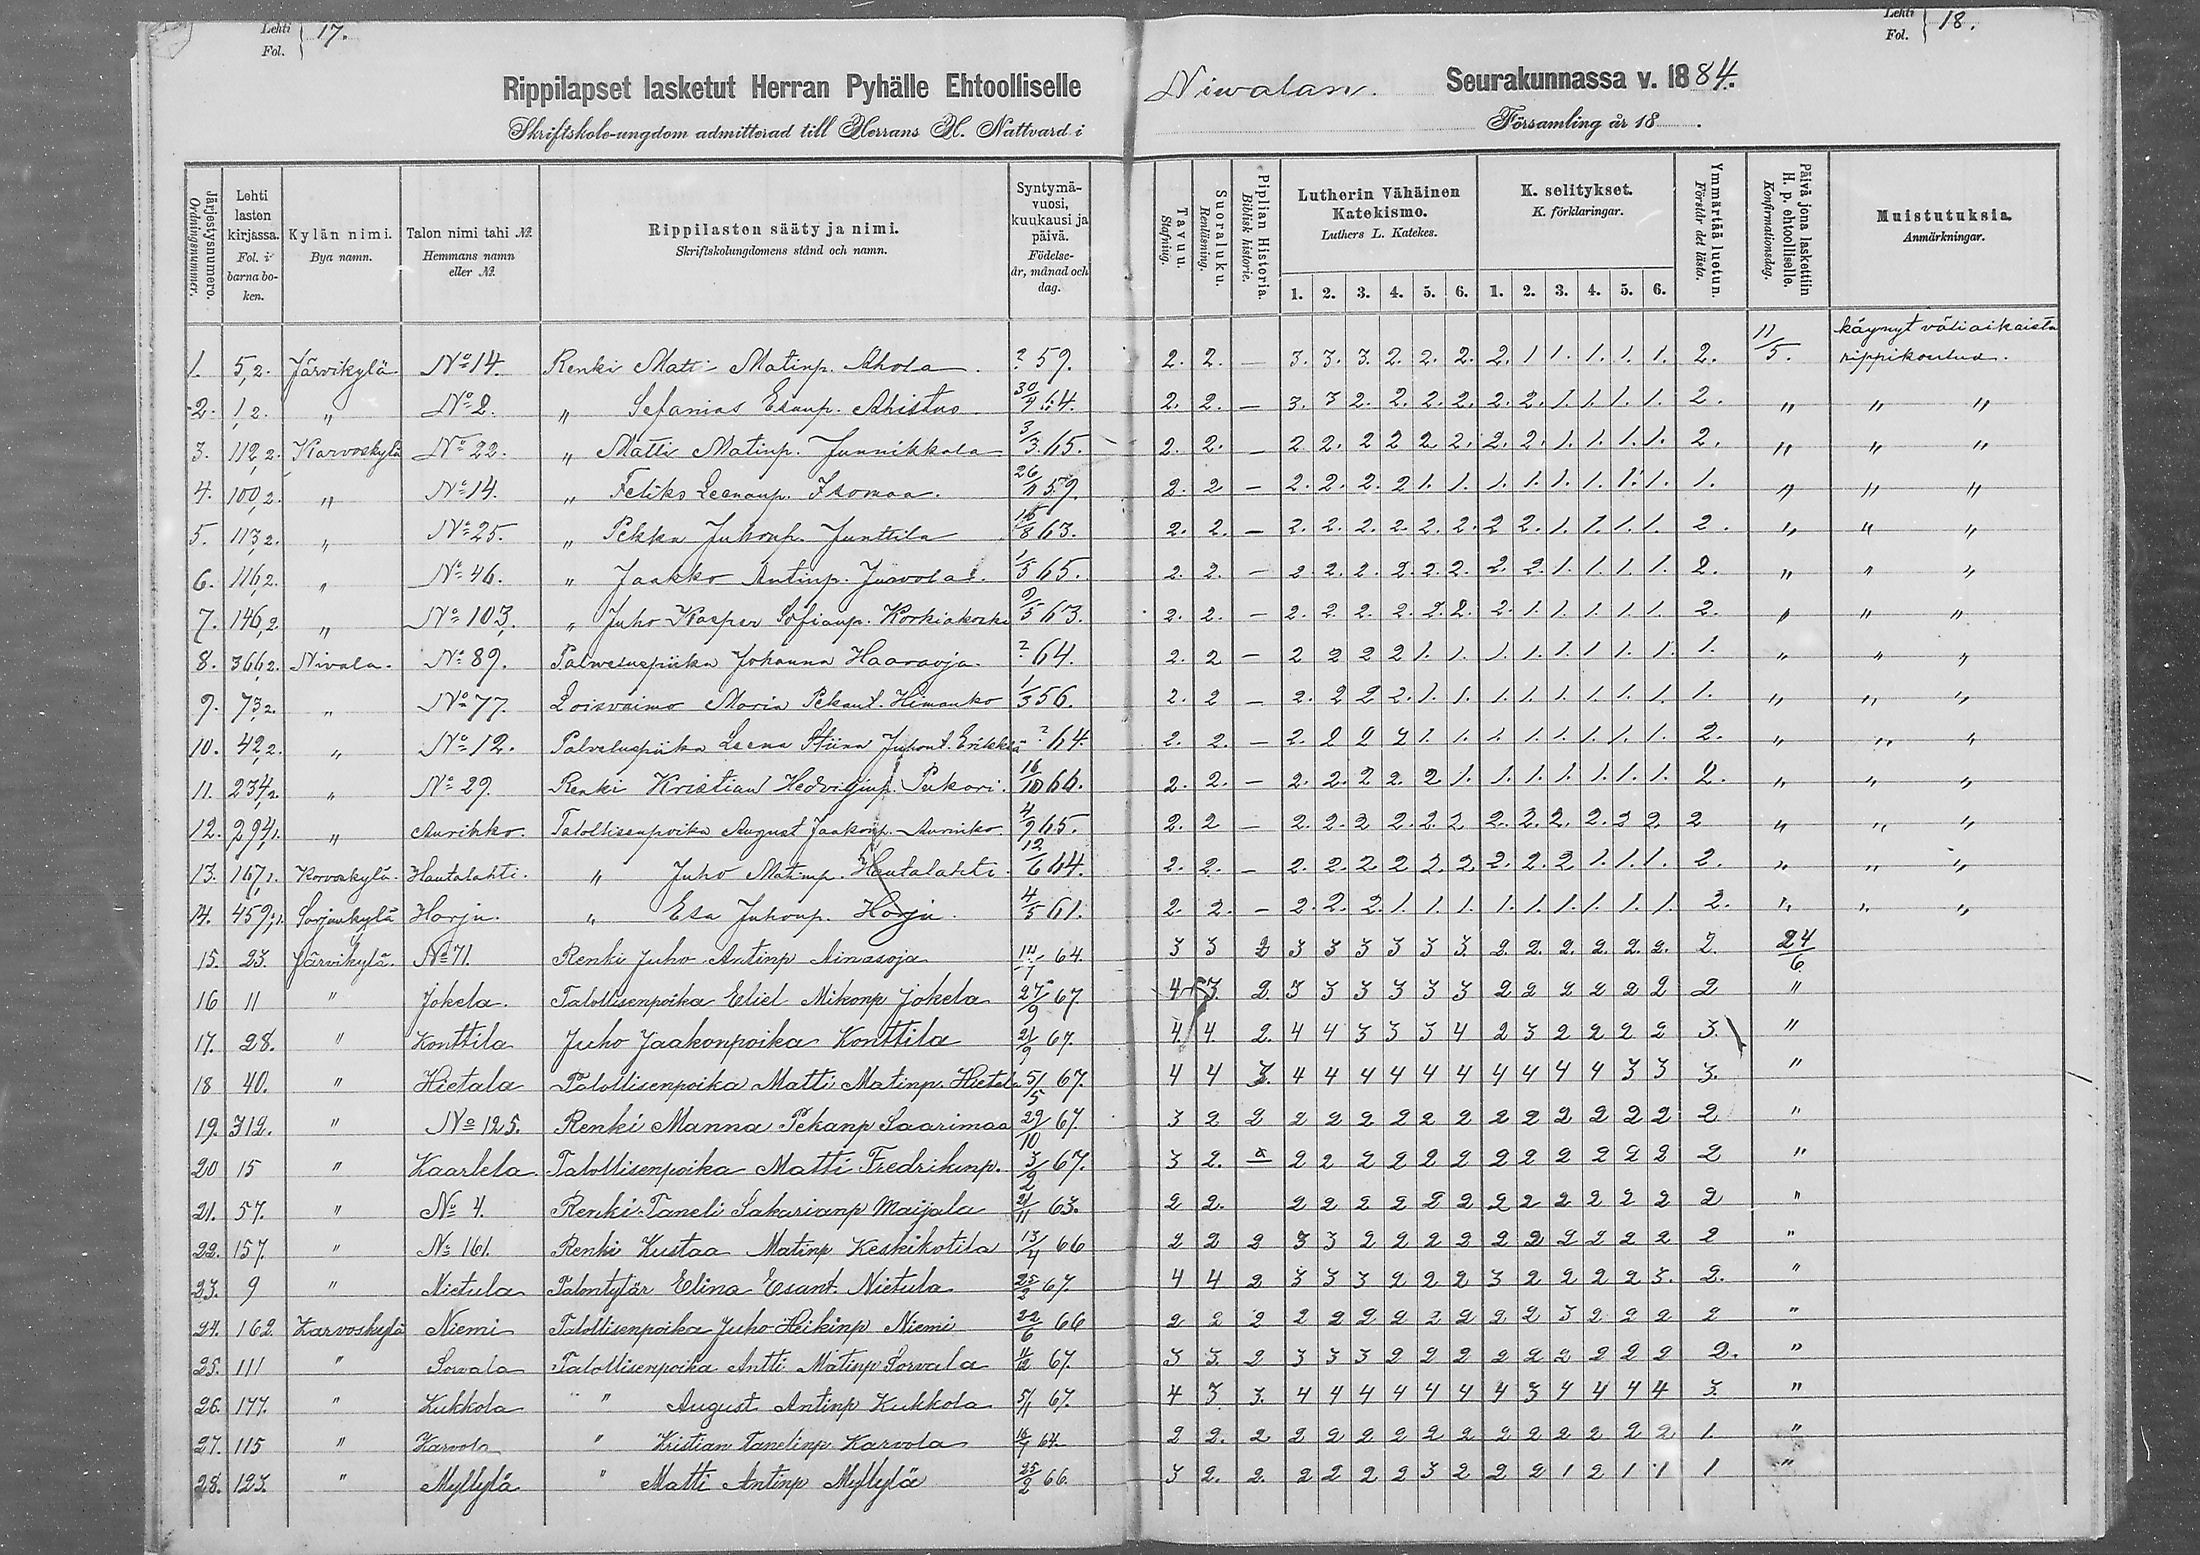 Lehti Fol. } 17.
Lehti Fol. } 18.
Rippilapset lasketut Herran Pyhälle Ehtoolliselle Niwalan. Seurakunnassa v. 1884.
Skriftskole-ungdom admitterad till Herrans H. Nattvard i Församling år 18 .
Järjestysnumero. Ordningsnummer. | Lehti lasten kirjassa. Fol. i barnaboken. | Kylän nimi. Bya namn. | Talon nimi tahi №. Hemmans namn eller №. | Rippilasten sääty ja nimi. Skriftskolungdomens stånd och namn. | Syntymävuosi, kuukausi ja päivä. Födelseår, månad och dag. | Tavuu. Stafning. | Suoraluku. Renläsning. | Piplian Historia. Biblisk historie. | Lutherin Vähäinen Katekismo. Luthers L. Katekes. | K. selitykset. K. förklaringar. | Ymmärtää luetun. Förstår det lästa. | Päivä jona laskettiin H. p. ehtoolliselle. Konfirmationsdag. | Muistutuksia. Anmärkningar.
1. 2. 3. 4. 5. 6. 1. 2. 3. 4. 5. 6.
1. 5,2. Järvikylä No 14. Renki Matti Matinp. Ahola ? 59. 2. 2. — 3. 3. 3. 2. 2. 2. 2. 1 1. 1. 1. 1. 2. 11/5. käynyt väliaikaista rippikoulua.
2. 1,2. " No 2. " Sefanias Esaup. 64. 2. 2. — 3. 3 2. 2. 2. 2. 2. 2. 1. 1. 1. 1. 2. " " "
3. 112,2. Karvoskylä No 22. " Matti Matinp. Junnikkala 3/3 65. 2. 2. — 2 2. 2 2 2 2. 2. 2. 1. 1. 1. 1. 2. " " "
4. 100,2. " No 14. " Feliks Leenanp. Isomaa. 59. 2. 2 — 2. 2. 2. 2 1. 1. 1. 1. 1. 1. 1. 1. 1. " " "
5. 113,2. " No 25. " Pekka Juhonp. Junttila 63. 2. 2. — 2. 2. 2. 2. 2. 2. 2 2. 1. 1. 1. 1. 2. " " "
6. 116,2. " No 46. " Jaakko Antinp. 65. 2. 2. — 2. 2. 2. 2. 2. 2. 2. 2. 1. 1. 1. 1. 2. " " "
7. 146,2. " No 103. " Juho Kasper Sofianp. Korkiakoski 9/5 63. 2. 2. — 2. 2. 2. 2. 2. 2. 2. 1. 1. 1. 1. 1. 2. " " "
8. 366,2. Nivala. No 89. Palveluspiika Johanna Haaraoja. ? 64. 2. 2 — 2 2 2 2 1. 1. 1. 1. 1. 1. 1. 1. 1. " " "
9. 73,2. " No 77. Loisvaimo Maria Pekant. Himanko 1/3 56. 2. 2 — 2. 2 2 2. 1. 1. 1. 1. 1. 1. 1. 1. 1. " " "
10. 42,2. " No 12. Palveluspiika Leena Stiina Juhont. Erikkilä ? 64. 2. 2. — 2. 2 2 2 1. 1. 1. 1. 1. 1. 1. 1. 2. " " "
11. 234,2. " No 29. Renki Kristian Hedviginp. Pukari. 16/10 66. 2. 2. — 2. 2. 2 2 2 1. 1. 1. 1. 1. 1. 1. 2. " " "
12. 294,1. " Aurikko. Talollisenpoika August Jaakonp. 4/9 65. 2. 2 — 2. 2. 2 2. 2. 2 2. 2. 2. 2. 2 2. 2 " " "
13. 167,1. Karvoskylä. Hautalahti. " Juho Matinp. Hautalahti. 12/6 64. 2. 2. — 2. 2. 2 2 2. 2 2. 2. 2 1. 1. 1. 2. " " "
14. 459,1. Sarjankylä Harju. " Esa Juhonp. Harju. 4/5 61. 2. 2. — 2. 2. 2. 1. 1. 1. 1. 1. 1. 1. 1. 1. 2. " " "
15. 23. Järvikylä. No 71. Renki Juho Antinp Ainasoja 64. 3 3 2 3 3 3 3 3 3. 2. 2. 2. 2. 2. 2. 2. 24/6
16 11 " Jokela. Talollisenpoika Eliel Mikonp Jokela 27/9 67. 4 3. 2. 3 3 3 3 3 3 2 2 2 2 2 2 2 "
17. 28. " Konttila Juho Jaakonpoika Konttila 21/9 67. 4. 4. 2. 4 4 3 3 3 4 2 3 2 2 2 2 3. "
18 40. " Hietala Talollisenpoika Matti Matinp. Hietala 5/5 67. 4 4 3. 4 4 4 4 4 4 4 4 4 4 3 3 3. "
19. 312. " No 125. Renki Manna Pekanp Saarimaa 22/10 67. 3 2 2 2 2 2 2 2 2 2 2 2 2 2 2 2 "
20 15 " Kaarlela Talollisenpoika Matti Fredrikinp. 67. 3 2. 2 2 2 2 2 2 2 2 2 2 2 2 2 "
21. 57. " No 4. Renki Taneli Sakarianp Maijala 21/11 63. 2 2. 2 2 2 2 2 2 2 2 2 2 2 2 2 "
22. 157. " No 161. Renki Kustaa Matinp Keskikotila 13/4 66 2 2 2 3 3 2 2 2 2 2 2 2 2 2 2 2 "
23. 9 " Nietula Talontytär Elina Esant. Nietula 67. 4 4 2 3 3 3 2 2 2 3 2 2 2 2 3. 2. "
24. 162. Karvoskylä Niemi Talollisenpoika Juho Heikinp Niemi 22/6 66 2 2 2 2 2 2 2 2 2 2 2 3 2 2 2 2 "
25. 111 " Sorvala Talollisenpoika Antti Matinp Sorvala 67. 3 3. 2 3 3 3 2 2 2 2 2 2 2 2 2 2. "
26. 177. " Kukkola " " August Antinp Kukkola 67. 4 3 3. 4 4 4 4 4 4 4 3 4 4 4 4 3. "
27. 115 " Karvola " Kristian Tanelinp Karvola 64. 2 2. 2 2 2 2 2 2 2 2 2 2 2 2 2 1. "
28. 123. " Myllylä " Matti Antinp Myllylä 25/2 66. 3 2. 2. 2 2 2 2 3 2 2 2 1 2 1 1 1 "